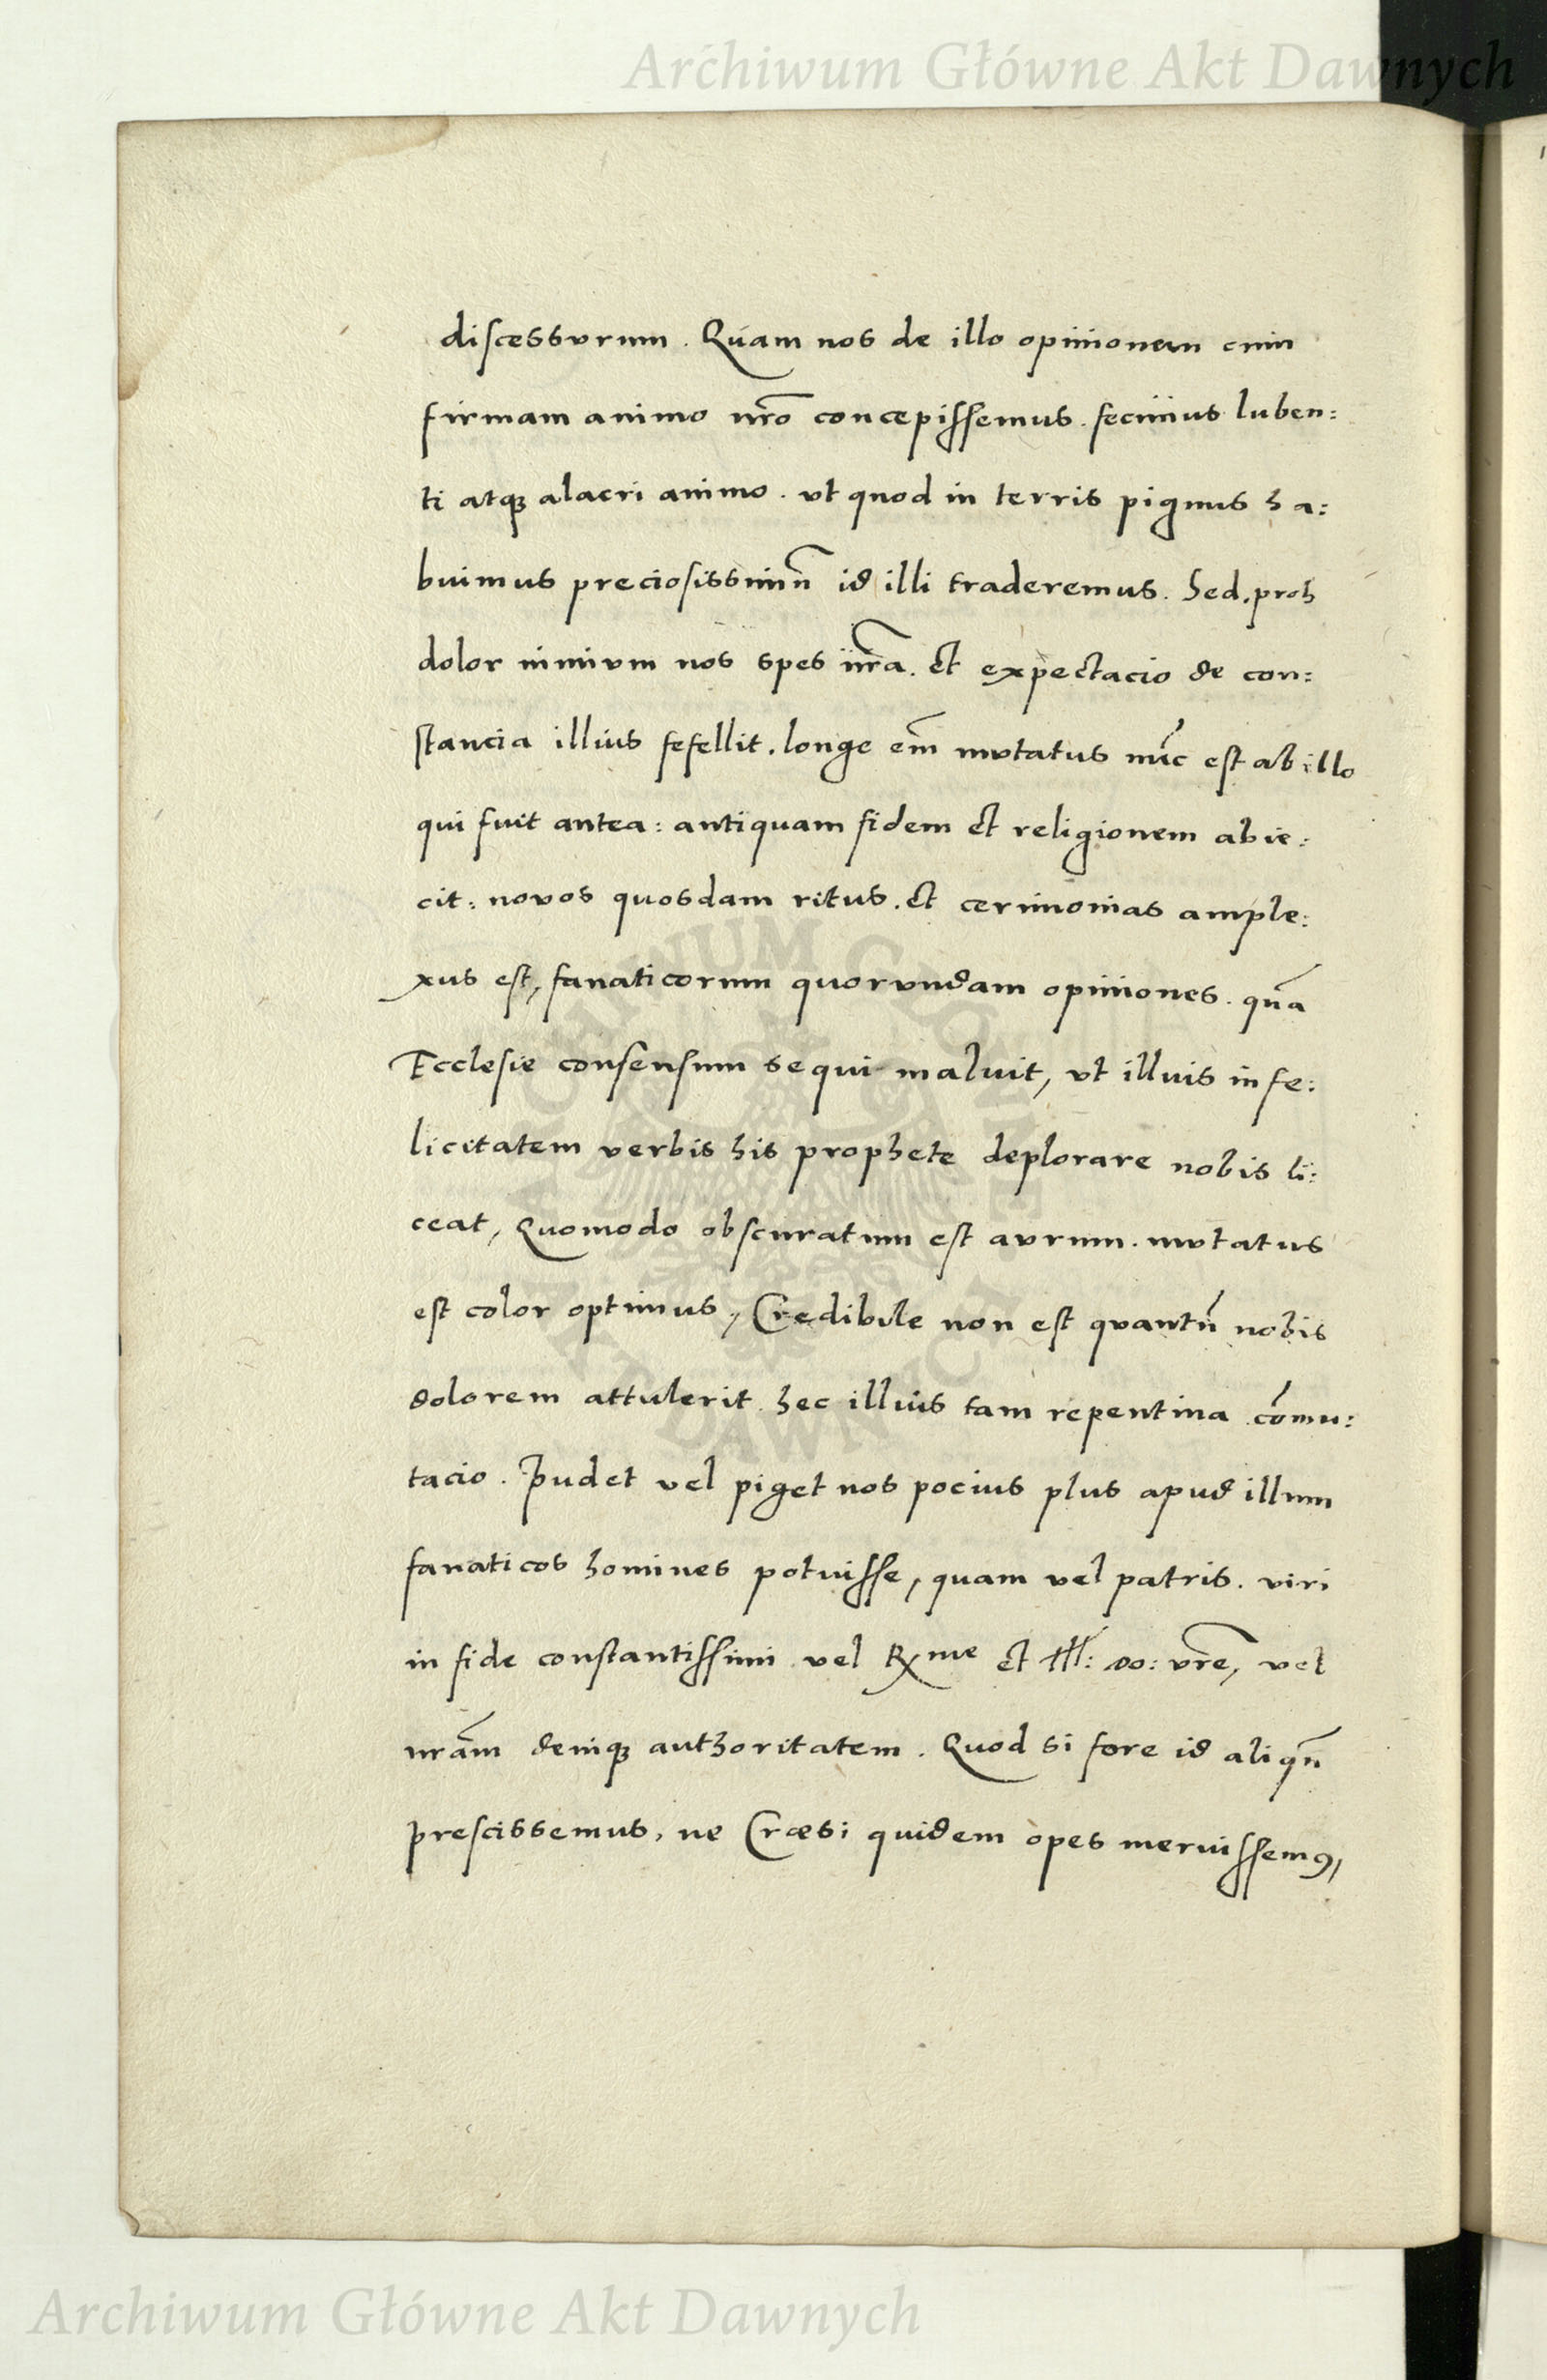 Archiwum Główne Akt Dawnych
discessvrum. Quam nos de illo opinionem cum
firmam animo nr̃o concepissemus. fecimus luben:
ti atqꝫ alacri animo. vt quod in terris pignus ha:
buimus preciosissimũ id illi traderemus. Sed. proh
dolor nimivm nos spes nr̃a. et expectacio de con:
stancia illius fefellit. longe em̃ mvtatus nũc est ab illo
qui fuit antea: antiquam fidem et religionem abie:
cit: novos quosdam ritus. et cerimonias ample:
xus est, fanaticorum quorvndam opiniones. quã
Ecclesie consensum sequi maluit, vt illius infe:
licitatem verbis his prophete deplorare nobis li:
ceat, Quomodo obscuratum est avrum. mvtatus
est color optimus, Credibile non est qvantũ nobis
dolorem attulerit hec illius tam repentina com̃u:
tacio. Pudet vel piget nos pocius plus apud illum
fanaticos homines potuisse, quam vel patris. viri
in fide constantissimi vel Rme et Ill: do: vr̃e, vel
nr̃am deniqꝫ authoritatem. Quod si fore id aliqñ
prescissemus, ne Cræsi quidem opes meruissemꝯ,
ARCHIWUM GŁÓWNE
AKT DAWNYCH
Archiwum Główne Akt Dawnych